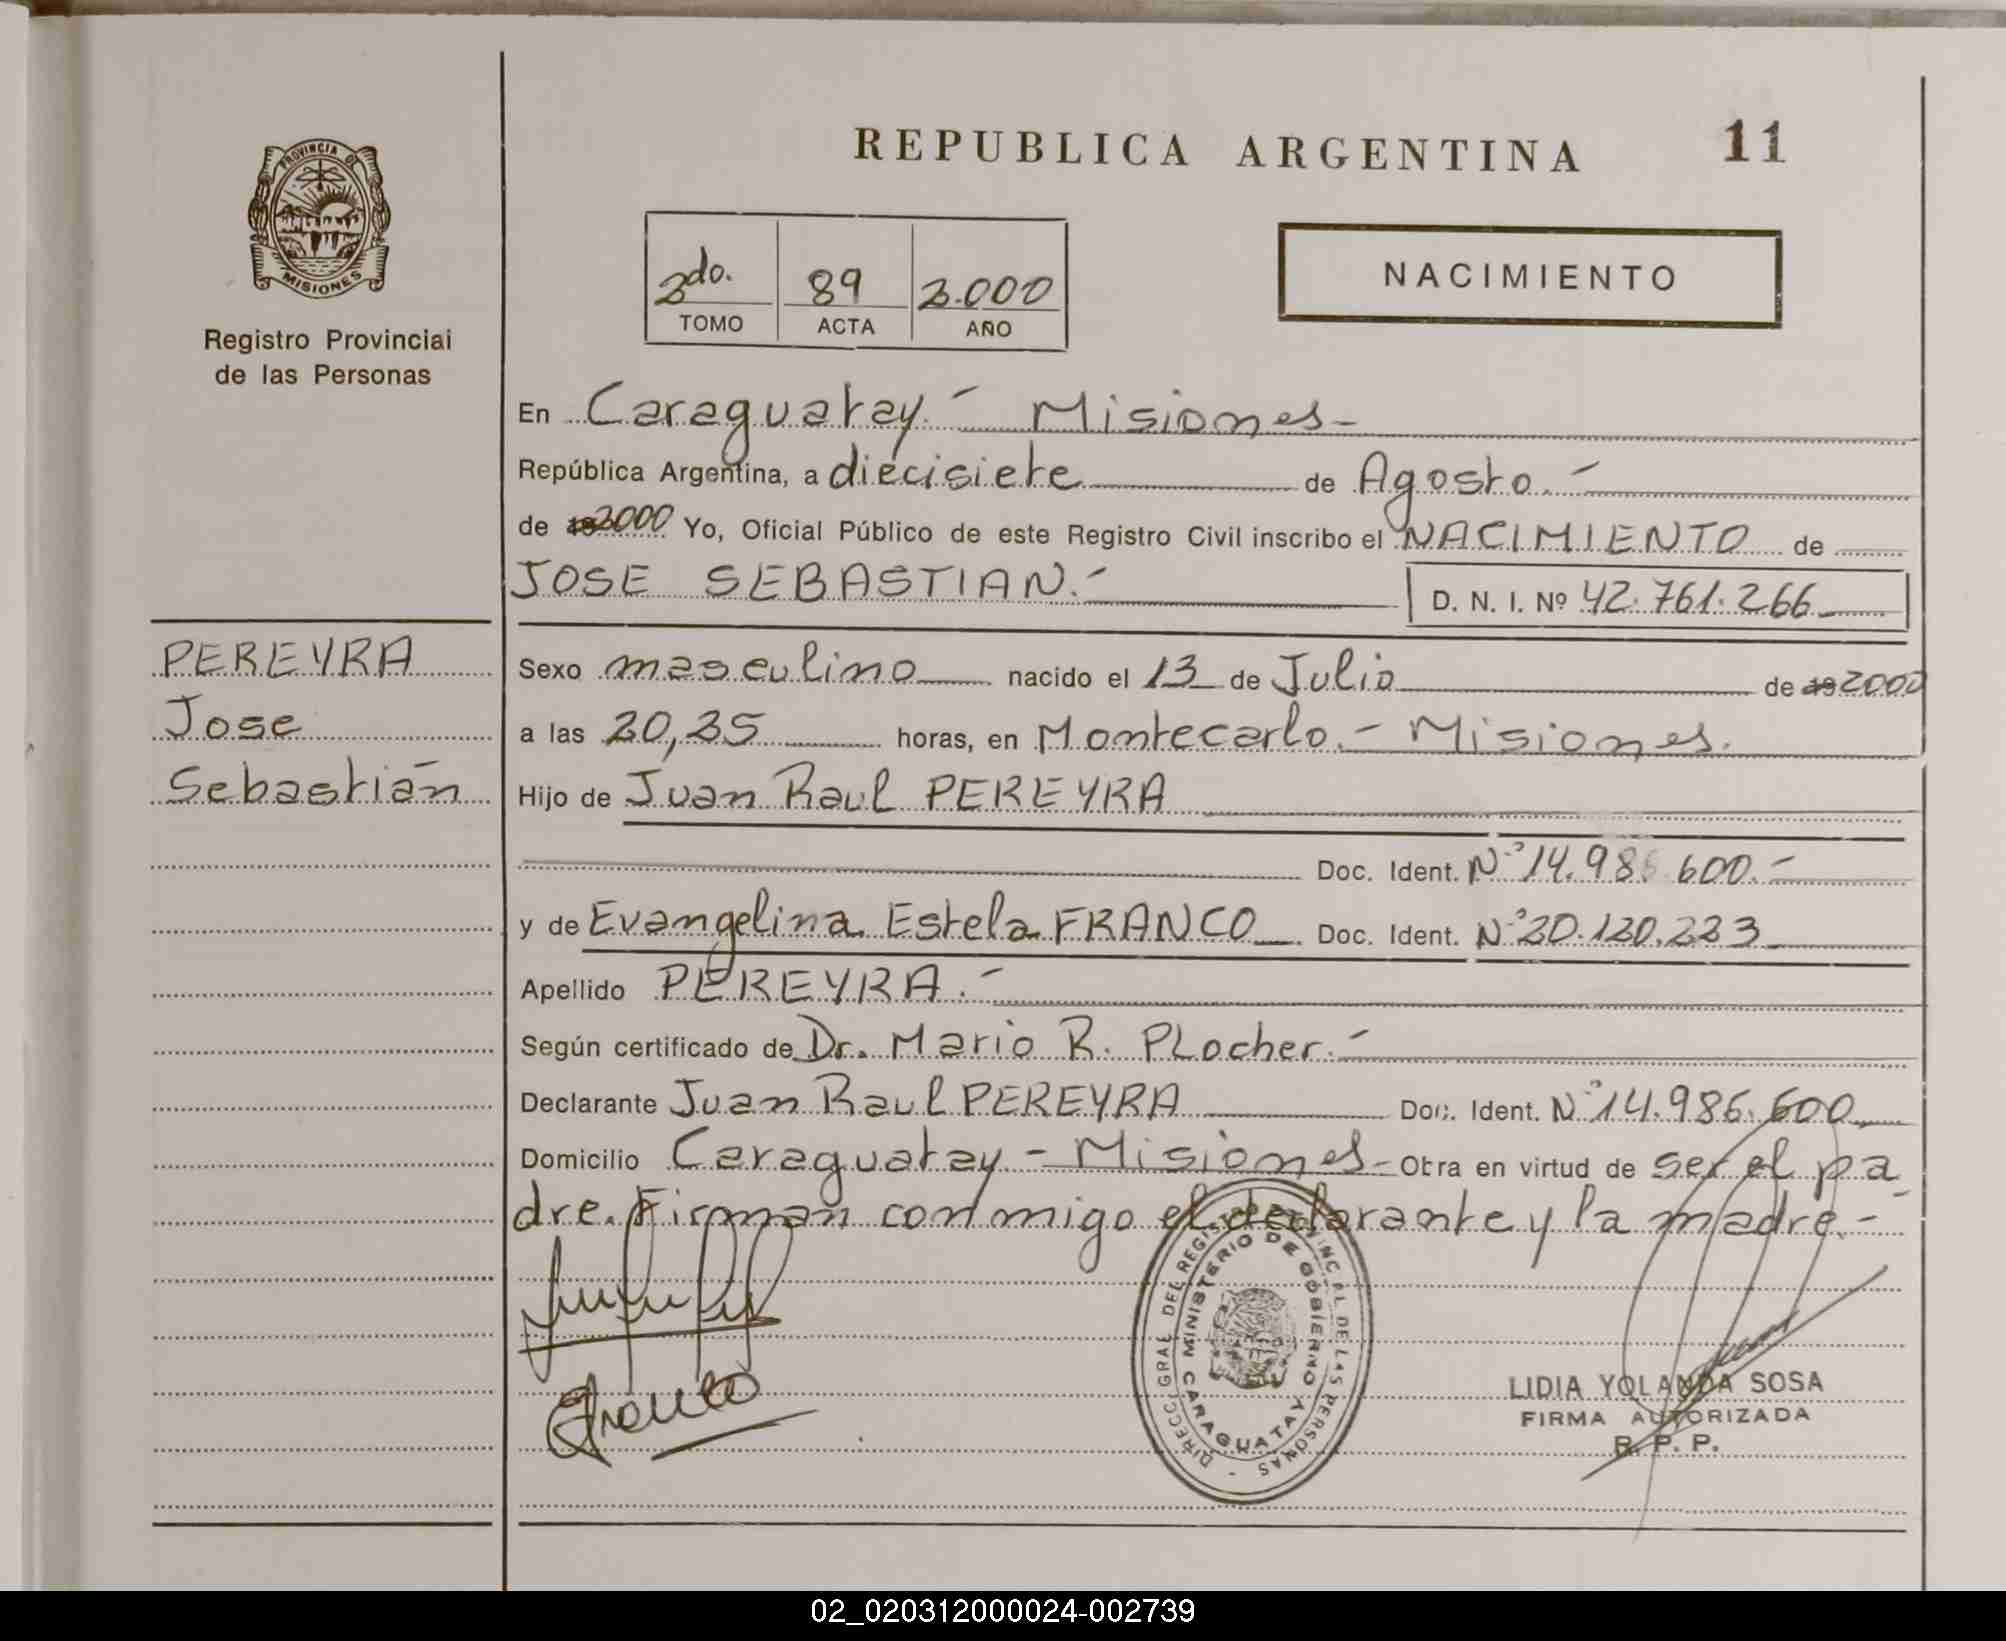 REPUBLICA ARGENTINA 11
PROVINCIA DE
MISIONES
Registro Provincial
de las Personas
2do. 89 2.000
TOMO ACTA AÑO
NACIMIENTO
En Caraguatay.- Misiones-
República Argentina, a diecisiete de Agosto.-
de 2000 Yo, Oficial Público de este Registro Civil inscribo el NACIMIENTO de
JOSE SEBASTIAN.- D. N. I. Nº 42.761.266
PEREYRA
Jose
Sebastián
Sexo masculino nacido el 13 de Julio de 19 2000
a las 20,35 horas, en Montecarlo.- Misiones.
Hijo de Juan Raul PEREYRA
Doc. Ident. Nº 14.986.600.-
y de Evangelina Estela FRANCO Doc. Ident. Nº 20.120.223
Apellido PEREYRA.-
Según certificado de Dr. Mario R. PLocher.-
Declarante Juan Raul PEREYRA Doc. Ident. Nº 14.986.600
Domicilio Caraguatay - Misiones - Obra en virtud de ser el pa
dre. Firman conmigo el declarante y la madre.-
Franco
DIRECC. GRAL. DEL REGISTRO PROVINCIAL DE LAS PERSONAS -
MINISTERIO DE GOBIERNO
CARAGUATAY
LIDIA YOLANDA SOSA
FIRMA AUTORIZADA
R. P. P.
02_020312000024-002739